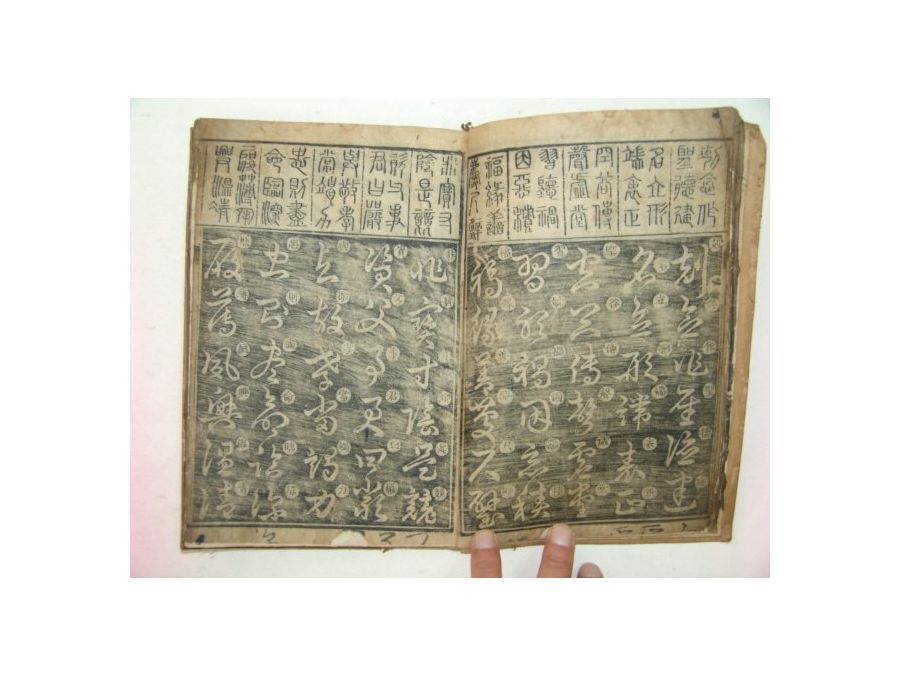 剋念作
聖德建
名立形
端表正
空谷傳
聲虛堂
習聽禍
因惡積
福緣善
慶尺璧
剋念作聖德建
名立形端表正
空谷傳聲虛堂
習聽禍因惡積
福緣善慶尺璧
非寶寸
陰是競
資父事
君曰嚴
與敬孝
當竭力
忠則盡
命臨深
履薄夙
興溫凊
非寶寸陰是競
資父事君曰嚴
與敬孝當竭力
忠則盡命臨深
履薄夙興溫凊